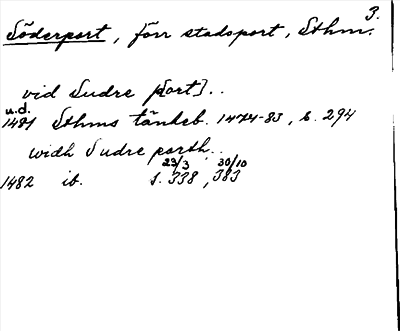 3.
Söderport, förr stadsport, Sthm.
vid Sudre [port]..
u.d.
1481 Sthms tänkeb. 1474-83, s. 294
widh Sudre porth..
23/3 30/10
1482 ib. s. 338, 383